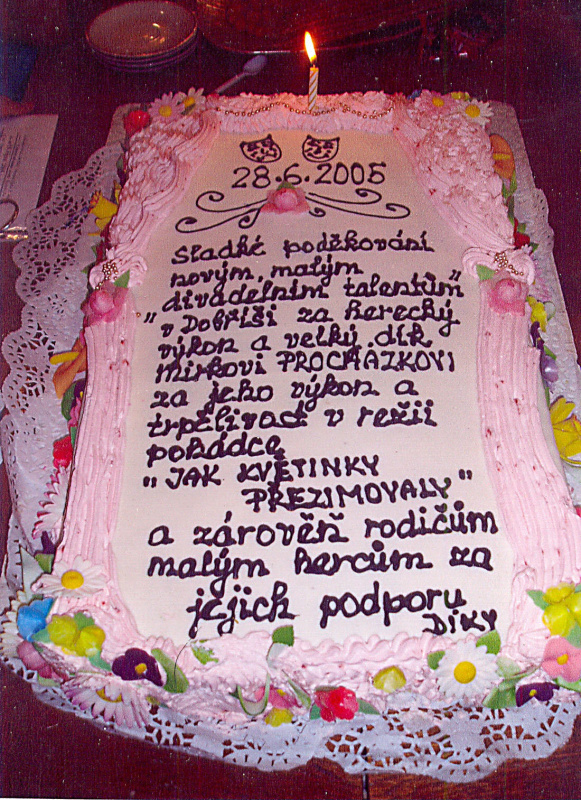 28.6.2005
sladké poděkování
novým, malým
divadelním talentům"
"v Dobříši za herecký
výkon a velký dík
mirkovi PROCHÁZKOVI
za jeho výkon a
trpělivost v režii
pohádce
"JAK KVĚTINKY
PŘEZIMOVALY"
a zárověň rodičům
malým hercům za
jejich podporu
DÍKY